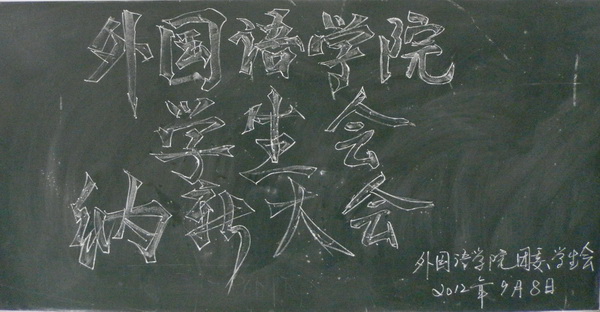 外国语学院
学生会
纳新大会
外国语学院团委、学生会
2012年9月8日